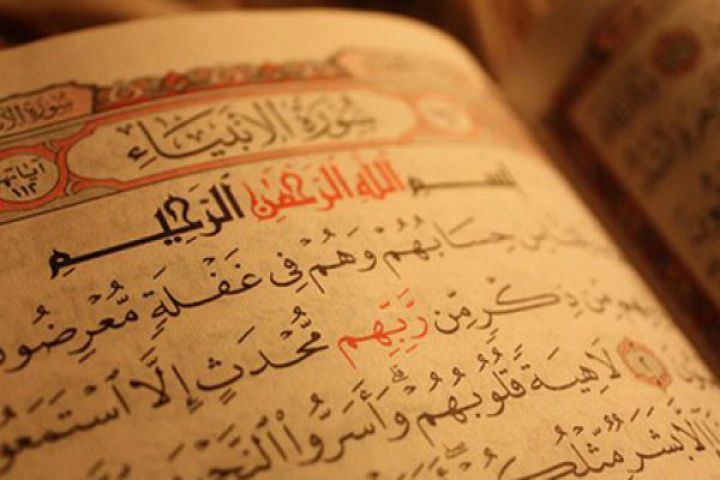 سُورَةُ الْأَنْبِيَاءِ
آيَاتُهَا ١١٢
بِسْمِ اللَّهِ الرَّحْمَٰنِ الرَّحِيمِ
حِسَابُهُمْ وَهُمْ فِي غَفْلَةٍ مُّعْرِضُونَ
مِّن ذِكْرٍ مِّن رَّبِّهِم مُّحْدَثٍ إِلَّا اسْتَمَعُو
٢ لَاهِيَةً قُلُوبُهُمْ ۗ وَأَسَرُّوا النَّجْوَى
إِلَّا بَشَرٌ مِّثْلُكُمْ